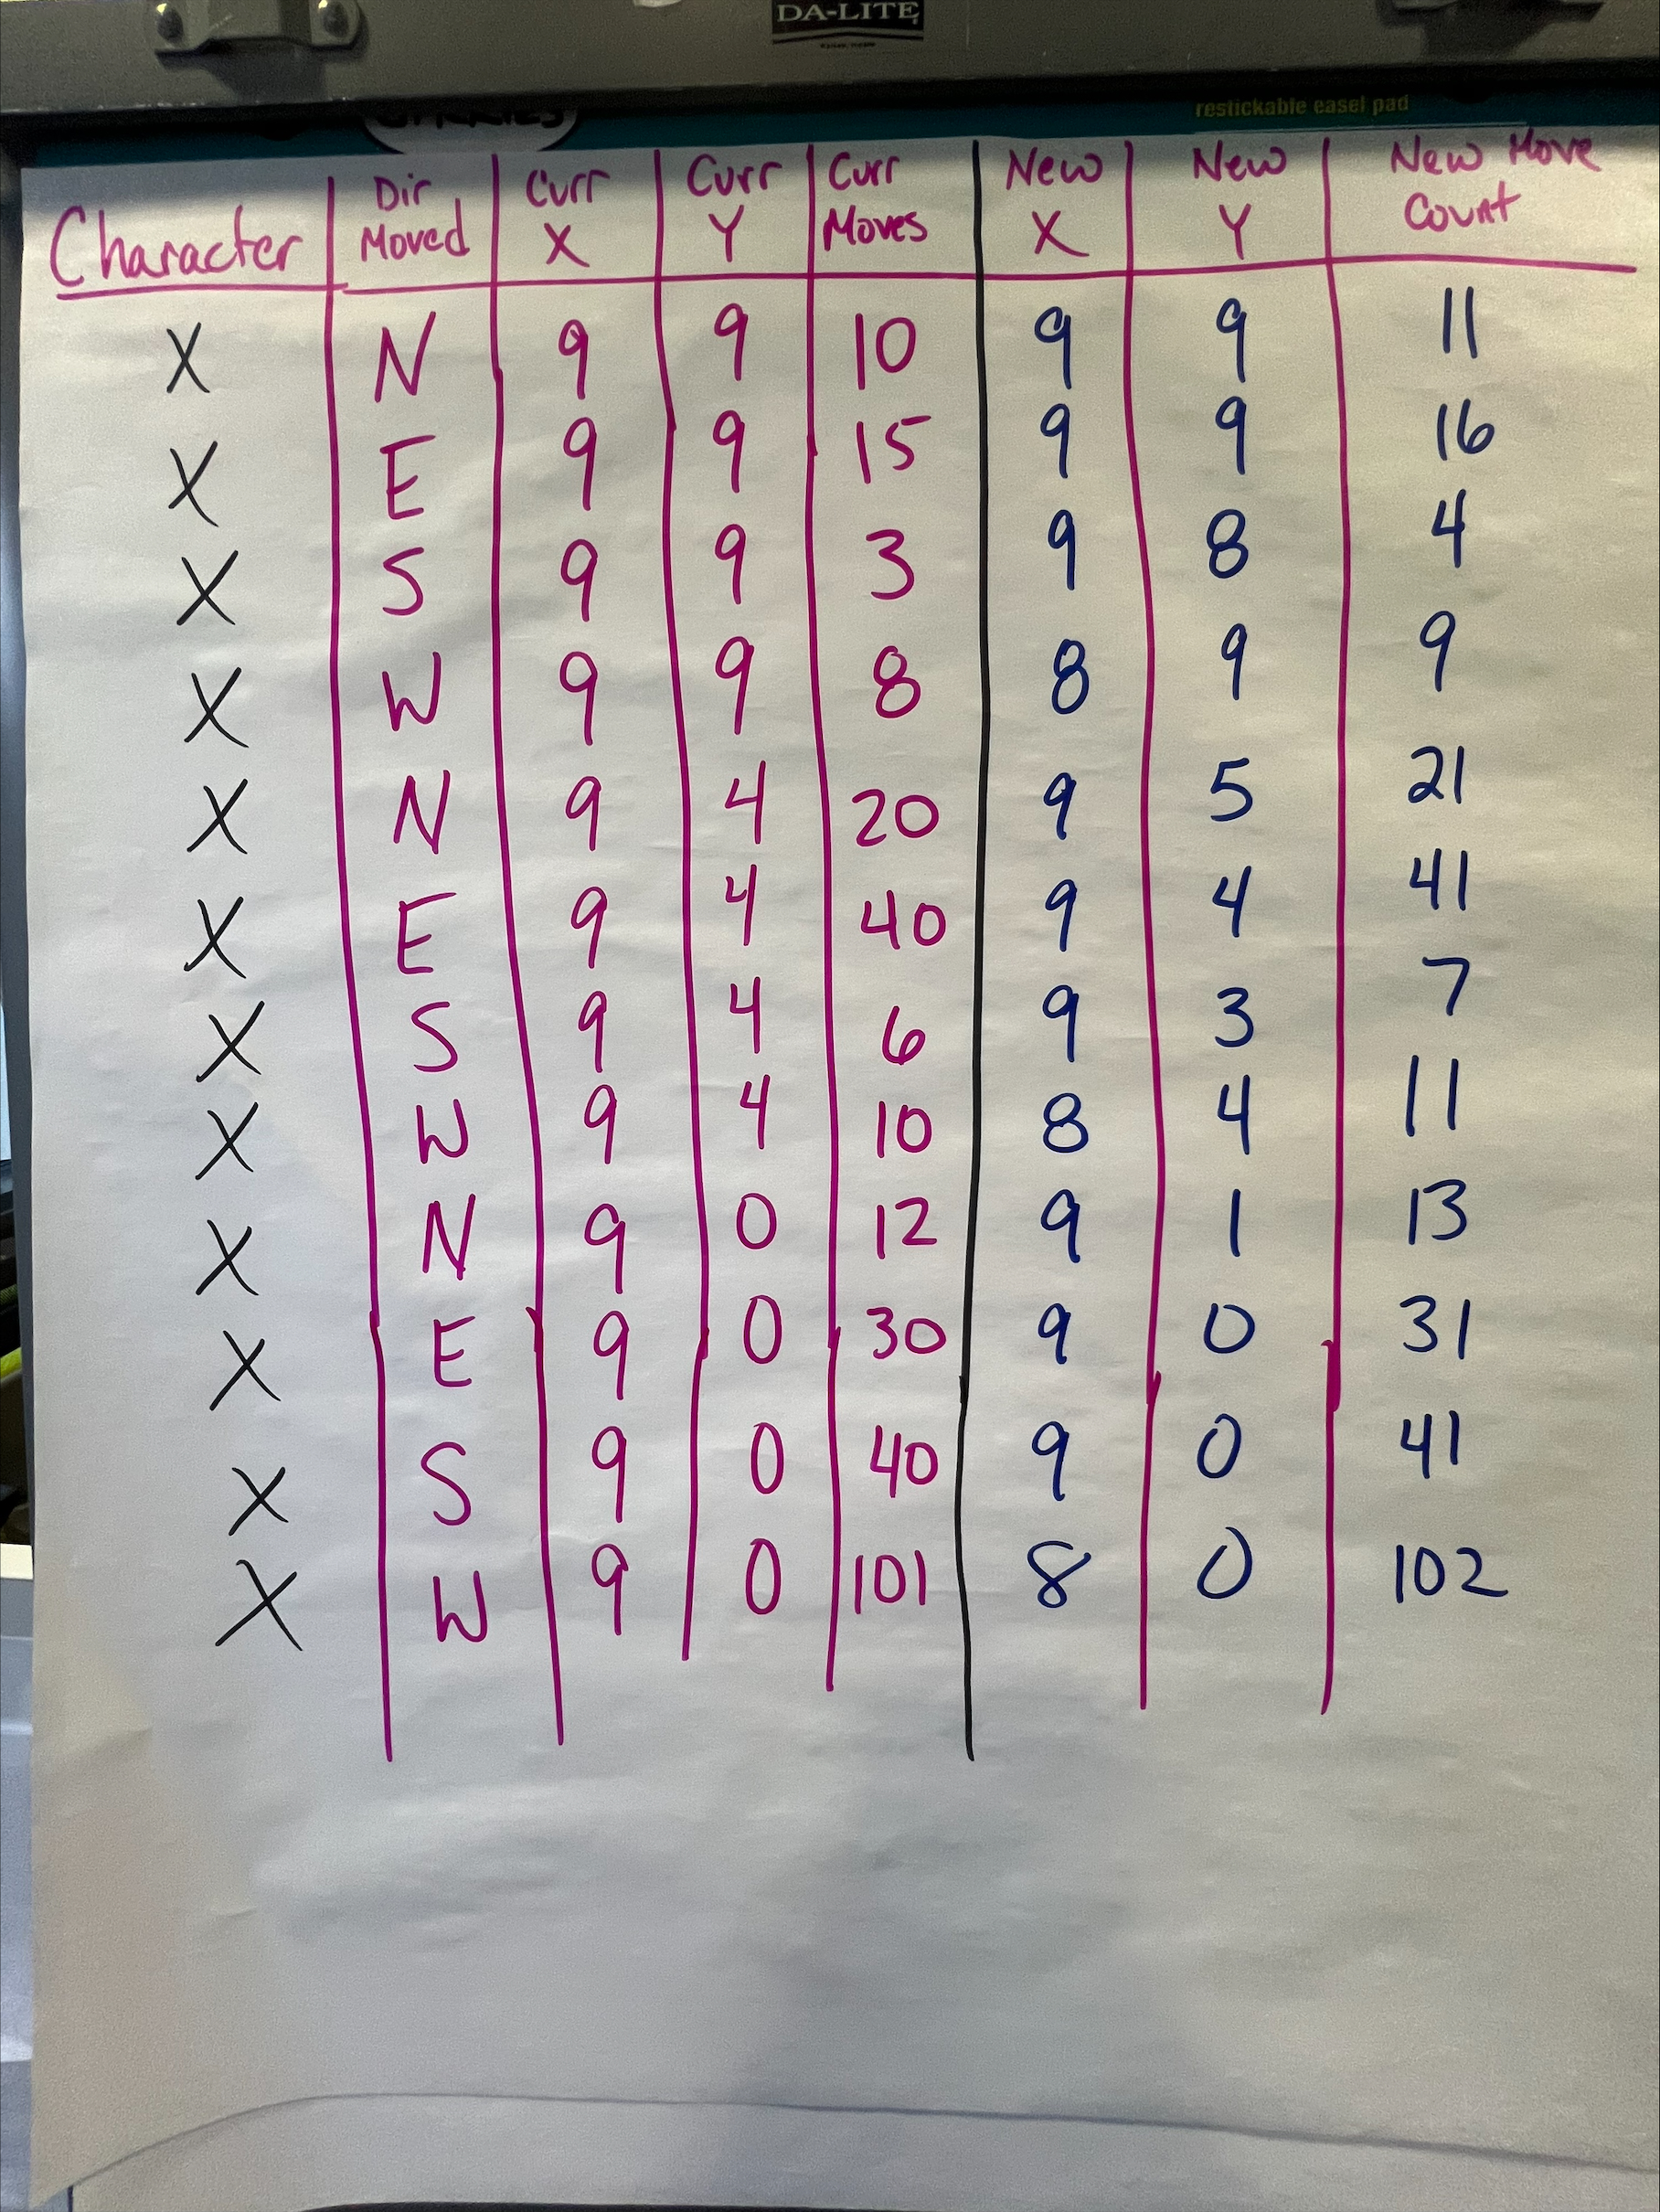 DA-LITE
restickable easel pad
Character | Dir Moved | Curr X | Curr Y | Curr Moves | New X | New Y | New Move Count
X N 9 9 10 9 9 11
X E 9 9 15 9 9 16
X S 9 9 3 9 8 4
X W 9 9 8 8 9 9
X N 9 4 20 9 5 21
X E 9 4 40 9 4 41
X S 9 4 6 9 3 7
X W 9 4 10 8 4 11
X N 9 0 12 9 1 13
X E 9 0 30 9 0 31
X S 9 0 40 9 0 41
X W 9 0 101 8 0 102